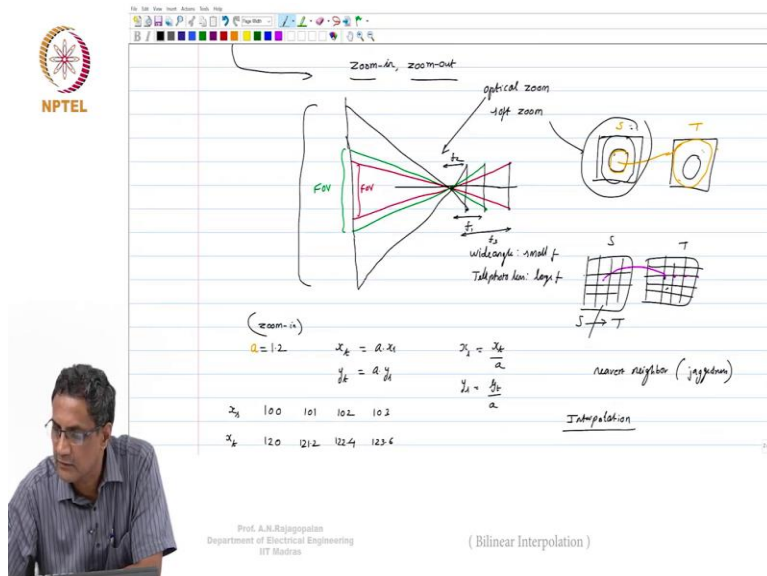 File Edit View Insert Actions Tools Help
Page Width
B I
NPTEL
zoom-in, zoom-out
optical zoom
soft zoom
S T
f2
FOV FOV
f1
f3
wideangle: small f
Telephoto len: large f
S T
S → T
(zoom-in)
a = 1.2 xt = a.xs xs = xt/a
yt = a.ys ys = yt/a
nearest neighbor (jaggedness)
xs 100 101 102 103
Interpolation
xt 120 121.2 122.4 123.6
Prof. A.N.Rajagopalan
Department of Electrical Engineering
IIT Madras
( Bilinear Interpolation )